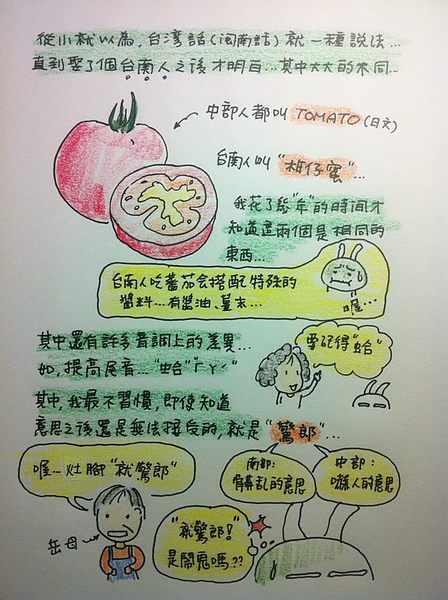 從小就以為,台灣話(閩南話)就一種說法...
直到娶了個台南人之後才明白...其中大大的不同...
中部人都叫 TOMATO(日文)
台南人叫"柑仔蜜"...
我花了幾"年"的時間才
知道這兩個是相同的
東西...
台南人吃蕃茄会搭配特殊的
醬料...有醬油、薑末...
喔...
其中還有許多音調上的差異...
如,提高尾音..."蛤""ㄏㄚˊ"
要記得"蛤"
其中,我最不習慣,即使知道
意思之後還是無法接合的,就是"驚郎"...
南部:
骯髒亂的意思
中部:
嚇人的意思
喔...灶腳"就驚郎"
岳母
"就驚郎!"
是鬧鬼嗎??